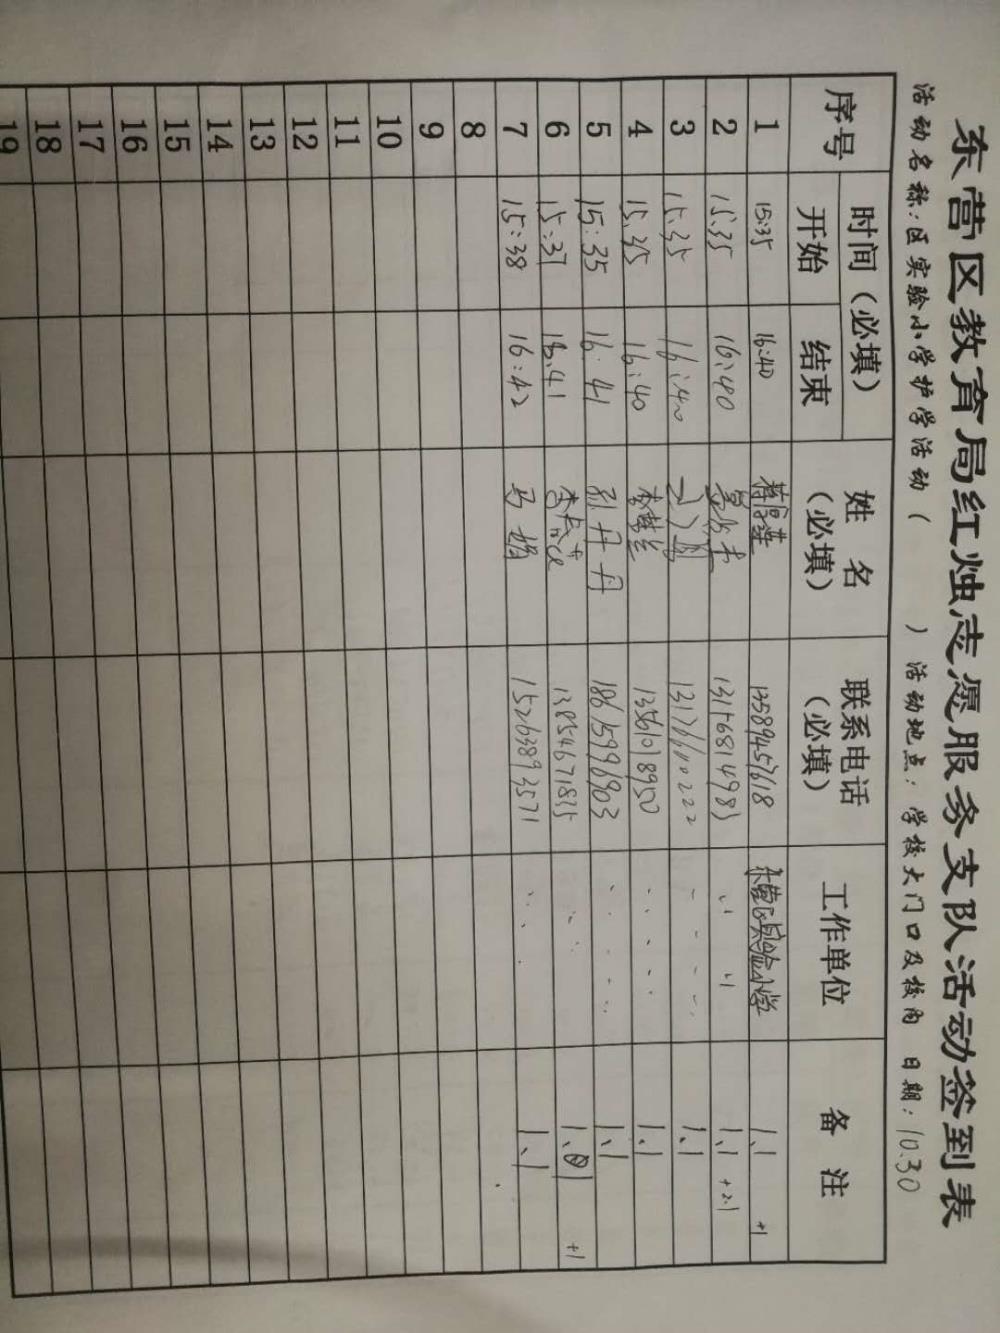 东营区教育局红烛志愿服务支队活动签到表
活动名称：区实验小学护学活动（ ）活动地点：学校大门口及校内 日期：10.30
序号 时间（必填） 姓 名（必填） 联系电话（必填） 工作单位 备 注
开始 结束
1 15:35 16:40 13589457618 东营区实验小学 1.1 +1
2 15:35 16:40 13156814983 〃 〃 1.1 +2.1
3 15:35 16:40 1.1
4 15:35 16:40 李慧兰 13561018950 1.1
5 15:35 16:41 孙丹丹 18615996903 1.1
6 15:37 16:41 13854671835 +1
7 15:38 16:42 马娟 15263893571 1.1
8
9
10
11
12
13
14
15
16
17
18
19